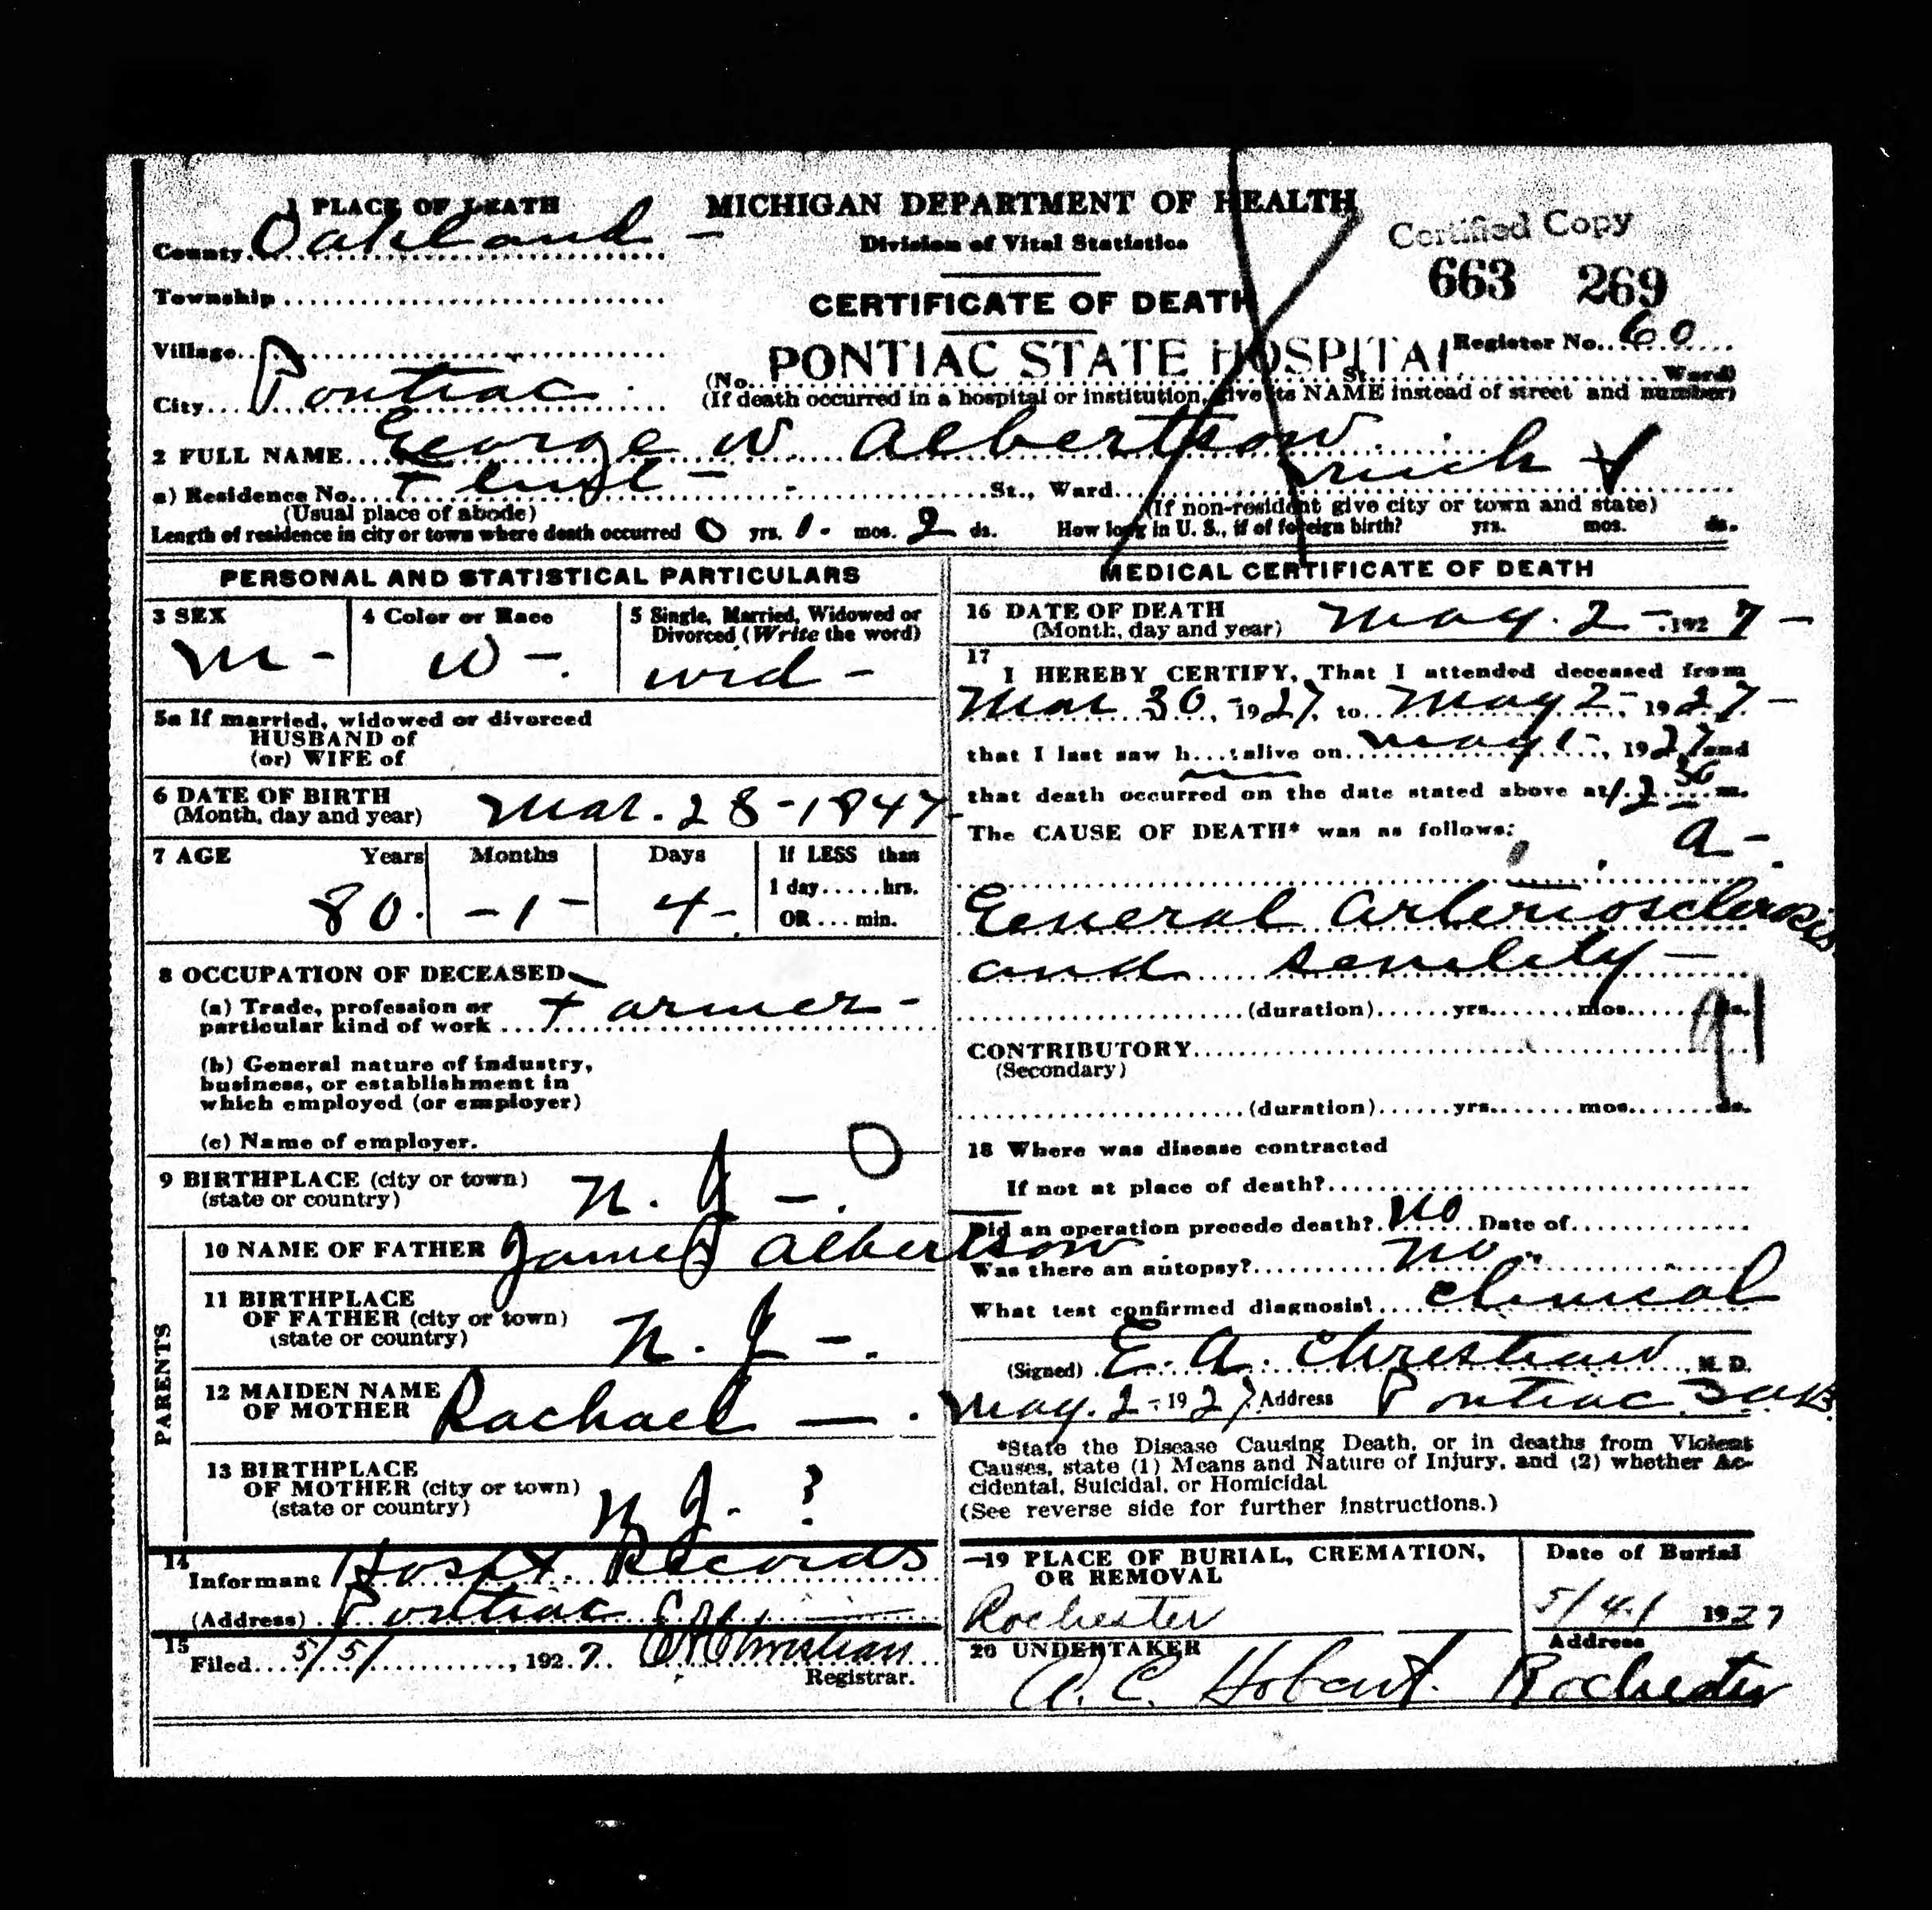 1 PLACE OF DEATH
MICHIGAN DEPARTMENT OF HEALTH
County Oakland -
Division of Vital Statistics
Certified Copy
663 269
Township
CERTIFICATE OF DEATH
Village
PONTIAC STATE HOSPITAL
Register No. 60
City Pontiac
(No. St. Ward)
(If death occurred in a hospital or institution, give its NAME instead of street and number)
2 FULL NAME George W Albertson
a) Residence No. Flint - St., Ward Mich
(Usual place of abode) (If non-resident give city or town and state)
Length of residence in city or town where death occurred 0 yrs. 1 - mos. 2 ds. How long in U. S., if of foreign birth? yrs. mos. ds.
PERSONAL AND STATISTICAL PARTICULARS
3 SEX
4 Color or Race
5 Single, Married, Widowed or
Divorced (Write the word)
M - W - wid -
5a If married, widowed or divorced
HUSBAND of
(or) WIFE of
6 DATE OF BIRTH
(Month, day and year) Mar. 28 - 1847
7 AGE Years Months Days If LESS than
1 day......hrs.
80. - 1 - 4 - OR ... min.
8 OCCUPATION OF DECEASED
(a) Trade, profession or
particular kind of work Farmer -
(b) General nature of industry,
business, or establishment in
which employed (or employer)
(c) Name of employer.
9 BIRTHPLACE (city or town)
(state or country) N. J -.
PARENTS
10 NAME OF FATHER James Albertson
11 BIRTHPLACE
OF FATHER (city or town)
(state or country) N. J -.
12 MAIDEN NAME
OF MOTHER Rachael — .
13 BIRTHPLACE
OF MOTHER (city or town)
(state or country) N J. - ?
14
Informant Hospt. Records
(Address) Pontiac
15
Filed 5/5/, 1927. EAChristian
Registrar.
MEDICAL CERTIFICATE OF DEATH
16 DATE OF DEATH
(Month, day and year) May. 2 - 1927 -
17
I HEREBY CERTIFY, That I attended deceased from
Mar 30, 1927, to May 2 -, 1927 -
that I last saw h... alive on May 1 -, 1927 and
that death occurred on the date stated above at 1 2 30 m.
The CAUSE OF DEATH* was as follows:
a -.
General Arteriosclerosis
and senility -
(duration) yrs. mos. ds.
91
CONTRIBUTORY
(Secondary)
(duration) yrs. mos. ds.
18 Where was disease contracted
If not at place of death?
Did an operation precede death? No Date of
Was there an autopsy? No.
What test confirmed diagnosis? Clinical
(Signed) E. A. Christian M. D.
May. 2 - 1927 Address Pontiac
*State the Disease Causing Death, or in deaths from Violent
Causes, state (1) Means and Nature of Injury, and (2) whether Ac-
cidental, Suicidal, or Homicidal.
(See reverse side for further instructions.)
19 PLACE OF BURIAL, CREMATION,
OR REMOVAL
Date of Burial
Rochester 5/4/ 1927
20 UNDERTAKER
Address
A. C. Hobart. Rochester